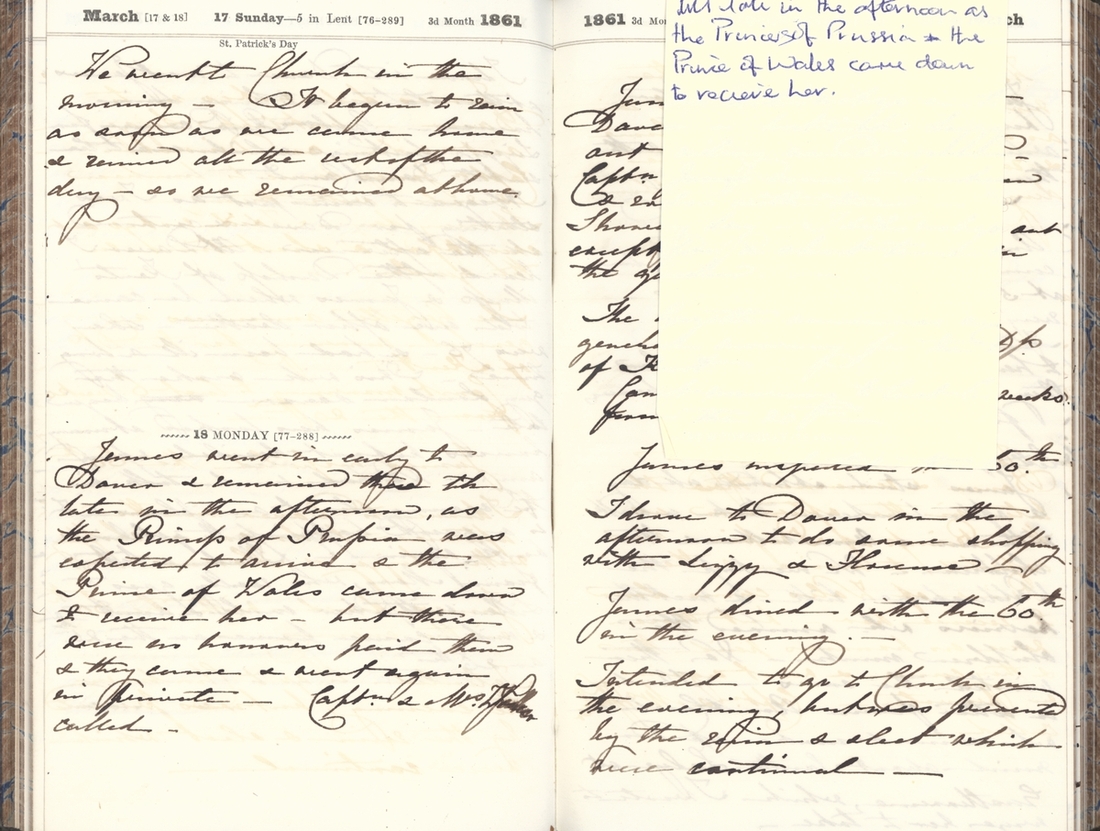 March [17 & 18] 17 Sunday—5 in Lent [76-289] 3d Month 1861
St. Patrick's Day
We went to Church in the
morning — It began to rain
as soon as we came home
& rained all the rest of the
day — so we remained at home.
18 MONDAY [77-288]
James went in early to
Dover & remained there till
late in the afternoon, as
the Princess of Prussia was
expected to arrive & the
Prince of Wales came down
to receive her — but there
were no honours paid them
& they came & went again
in private — Captn. & Mrs
called —
1861 3d Mo ch
till late in the afternoon as
the Princess of Prussia & the
Prince of Wales came down
to recieve her.
Jam
Dove
out
Captn
&
Thorn out
except in
the
The
gener
of
weeks
from
James inspected 60th
I drove to Dover in the
afternoon to do some shopping
with Lizzy & Florence —
James dined with the 60th
in the evening. —
Intended to go to Church in
the evening, but was prevented
by the rain & sleet which
were continual —